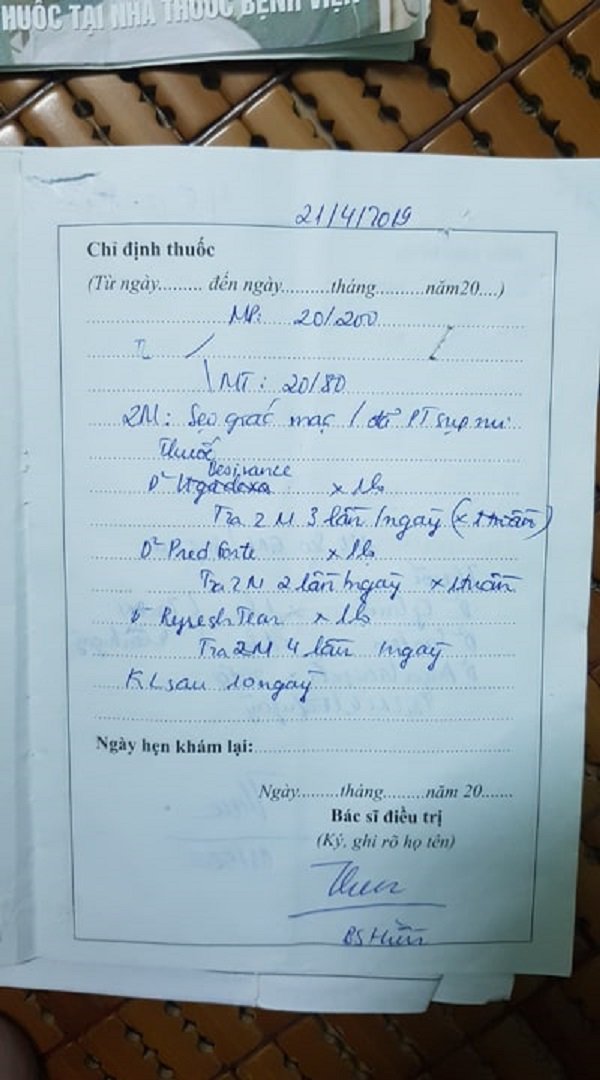 HUỐC TẠI NHÀ THUỐC BỆNH VIỆ
21/4/2019
Chỉ định thuốc
(Từ ngày......... đến ngày..........tháng..........năm20....)
MP: 20/200
MT: 20/80
2M: Sẹo giác mạc / đã PT sụp mi
Thuốc
Besivance
D² x 1lọ
Tra 2M 3 lần/ngày (x 1 tuần)
D² Pred Forte x 1lọ
Tra 2M 2 lần/ngày x 1 tuần
D² Refresh Tear x 1lọ
Tra 2M 4 lần /ngày
KL sau 10 ngày
Ngày hẹn khám lại:
Ngày.........tháng.........năm 20.......
Bác sĩ điều trị
(Ký, ghi rõ họ tên)
BS Hiền